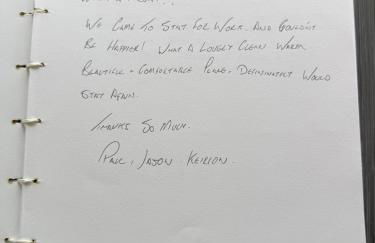 We Came To Stay For Work. And Couldn't
Be Happier! What A Lovely Clean Warm
Beautiful + Comfortable Place. Defininately Would
Stay Again.
Thanks So Much.
Paul, Jason